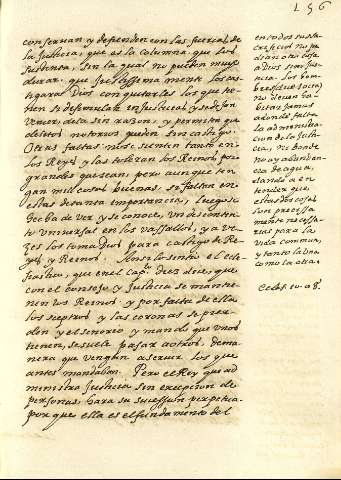 156
conservan y defienden con las fuerzas de
la Justicia, que es la columna que los
sustenta, sin la qual no pueden muy
durar. que Justissima mente los cas-
tigara Dios con quitarles los que tie-
nen si dissimulan Injusticias y se dejan
vencer, de la sin razon, y permiten q̃
delitos notorios queden sin castigo.
Otras faltas no se sienten tanto en
los Reyes y las toleran los Reinos por
grandes que sean, pero aunque ten
gan mil cosas buenas si faltan en
esta de tanta importancia, luego se
hecha de ver y se conoce, un disconten-
to universal en los vassallos, y a ve-
zes los toma Dios para castigo de Re-
yes, y Reinos. Assi lo sintio el ecle-
siastico, que en el cap.º diez dice, que
con el consejo y Justicia se mantie-
nen los Reinos y por falta de ellas
los sceptros y las coronas se pier-
den y el senorio y mando que unos
tienen, se suele pasar a otros. De ma-
nera que vengan a servir los que
antes mandaban. Pero el Rey que ad
ministra Justicia sin excepcion de
personas, hara su sucession perpetua
porque ella es el fundamento del
en todos sus sa-
crificios no pe-
dian otro a
Dios sino Jus-
ticia. los hom-
bres
no deben ha-
bitar Jamas
adonde falta
la administra-
cion de la Justi-
cia, ni donde
no ay abundan-
cia de agua,
dando a en
tender que
estas dos cosas
son precissa
mente necessa-
rias para la
vida commun,
y tanto la una
como la otra.
Eccles. 10. 08.